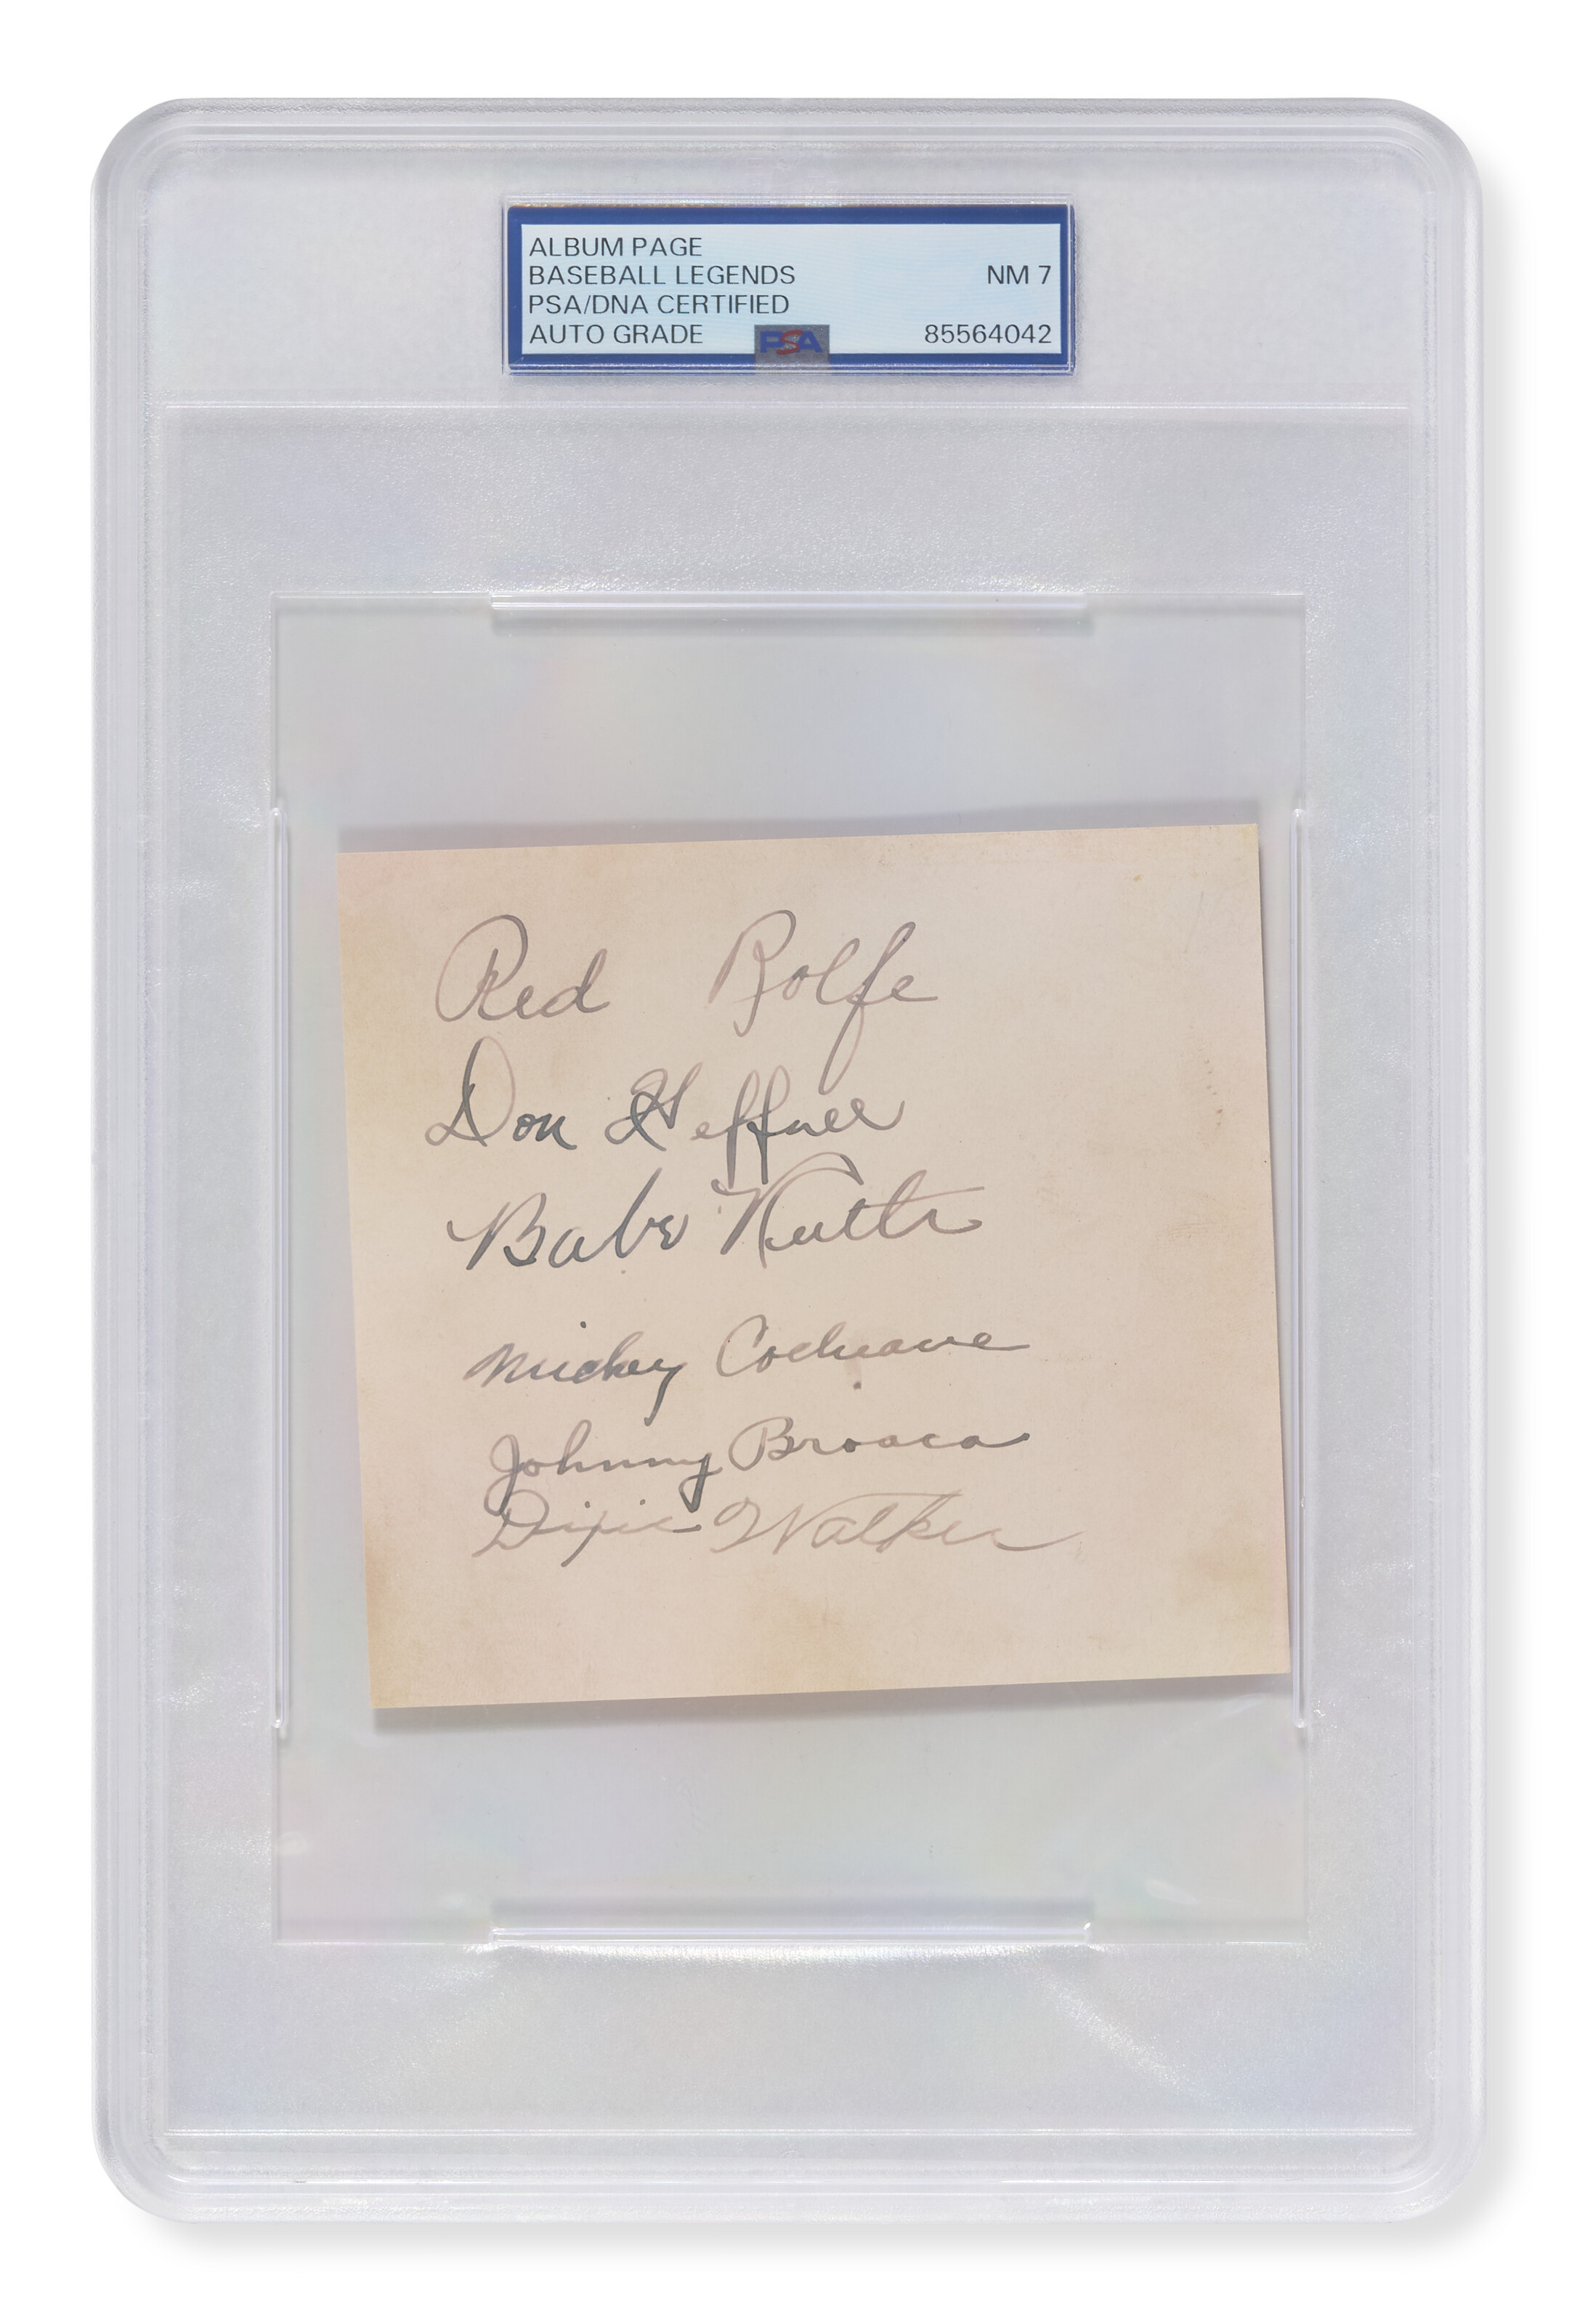 ALBUM PAGE
BASEBALL LEGENDS NM 7
PSA/DNA CERTIFIED
AUTO GRADE PSA 85564042
Red Rolfe
Don Heffner
Babe Ruth
Mickey Cochrane
Johnny Broaca
Dixie Walker